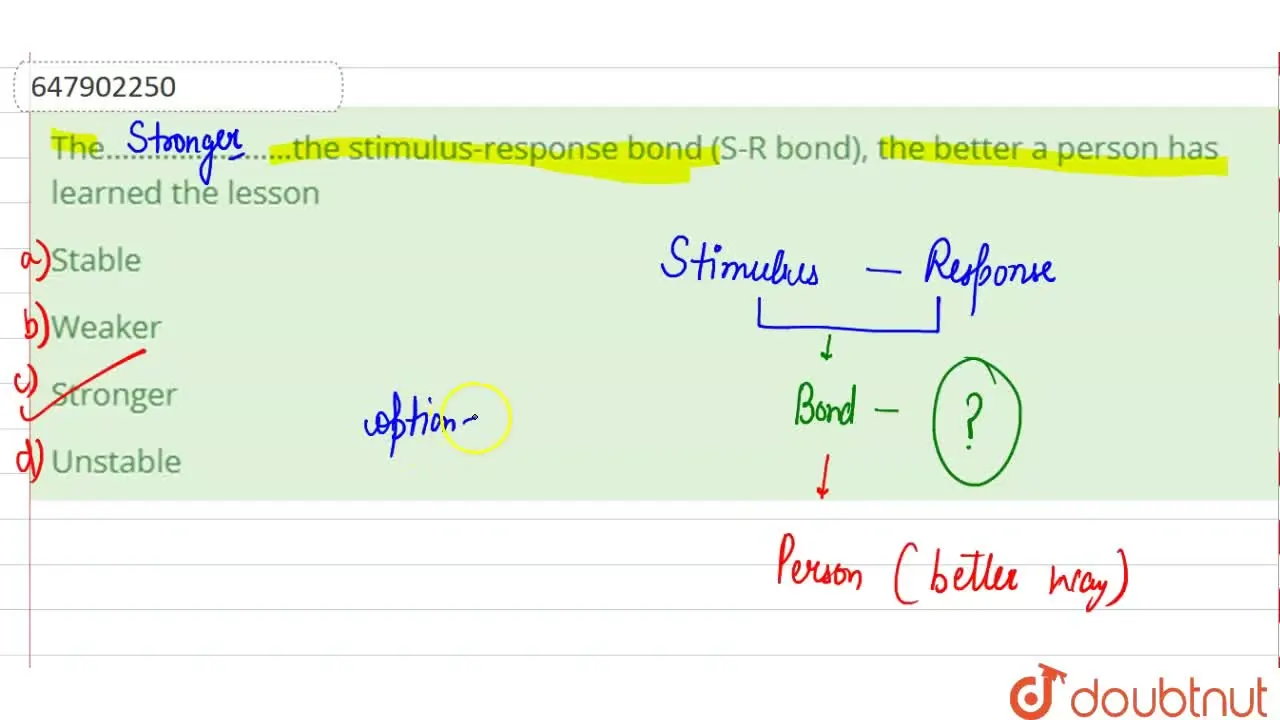 647902250
The......Stronger......the stimulus-response bond (S-R bond), the better a person has
learned the lesson
a) Stable
b) Weaker
c) Stronger
d) Unstable
Stimulus — Response
Bond — ?
option-
Person (better way)
doubtnut